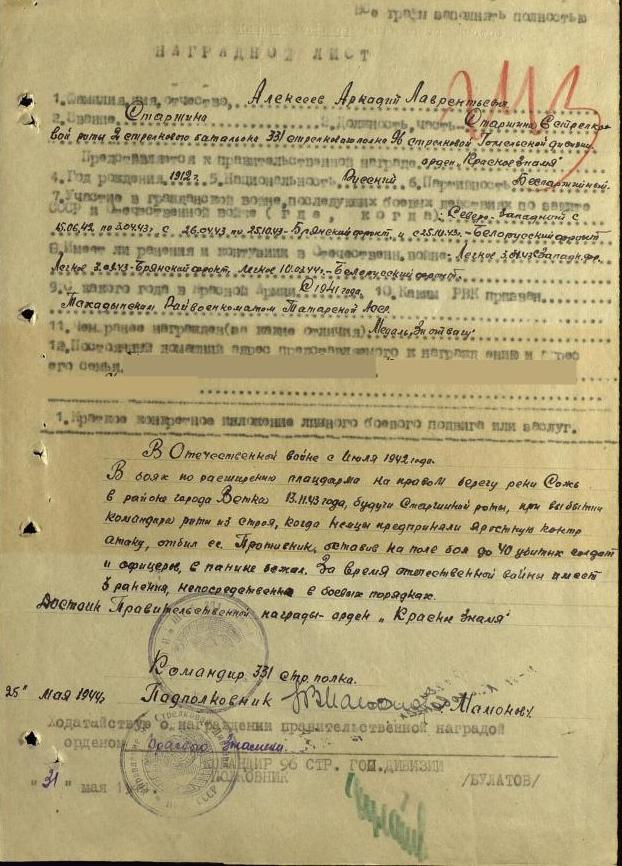 Все графы заполнять полностью
НАГРАДНОЙ ЛИСТ
1. Фамилия, имя, отчество, Алексеев Аркадий Лаврентьевич
2. Звание Старшина 3. Должность, часть Старшина стрелко-
вой роты 2 стрелкового батальона 331 стрелкового полка 96 стрелковой Гомельской дивизии
Представляется к правительственной награде орден „Красное Знамя"
4. Год рождения 1912 г. 5. Национальность Русский 6. Партийность Беспартийный.
7. Участие в гражданской войне, последующих боевых действиях по защите
СССР и Отечественной войне (где, когда): Северо-Западный с
15.06.42 по 3.04.43, с 26.04.43 по 25.10.43-Брянский фронт, и с 25.10.43г.-Белорусский фронт
8. Имеет ли ранения и контузии в Отечественной войне: Легкое
Легкое 3.08.43-Брянский фронт, Легкое 10.02.44г.-Белорусский фронт.
9. С какого года в Красной Армии, С 1941 года. 10. Каким РВК призван.
Райвоенкоматом Татарской АССР.
11. Чем ранее награжден (за какие отличия) Медаль „За отвагу"
12. Постоянный домашний адрес представляемого к награждению и адрес
его семьи.
1. Краткое конкретное изложение личного боевого подвига или заслуг.
В Отечественной войне с Июля 1942 года.
В боях по расширению плацдарма на правом берегу реки Сожь
в районе города Ветка 13.11.43 года, будучи Старшиной роты, при выбытии
командира роты из строя, когда немцы предприняли яростную контр
атаку, отбил ее. Противник, оставив на поле боя до 40 убитых солдат
и офицеров, в панике бежал. За время отечественной войны имеет
3 ранения, непосредственно в боевых порядках.
Достоин Правительственной награды - орден „Красное Знамя"
Командир 331 стр. полка.
25" мая 1944г. Подполковник /Мамонов/.
Ходатайствую о награждении правительственной наградой
орденом Красное Знамени.
КОМАНДИР 96 СТР. ГОМ. ДИВИЗИИ
ПОЛКОВНИК /БУЛАТОВ/
"31" мая